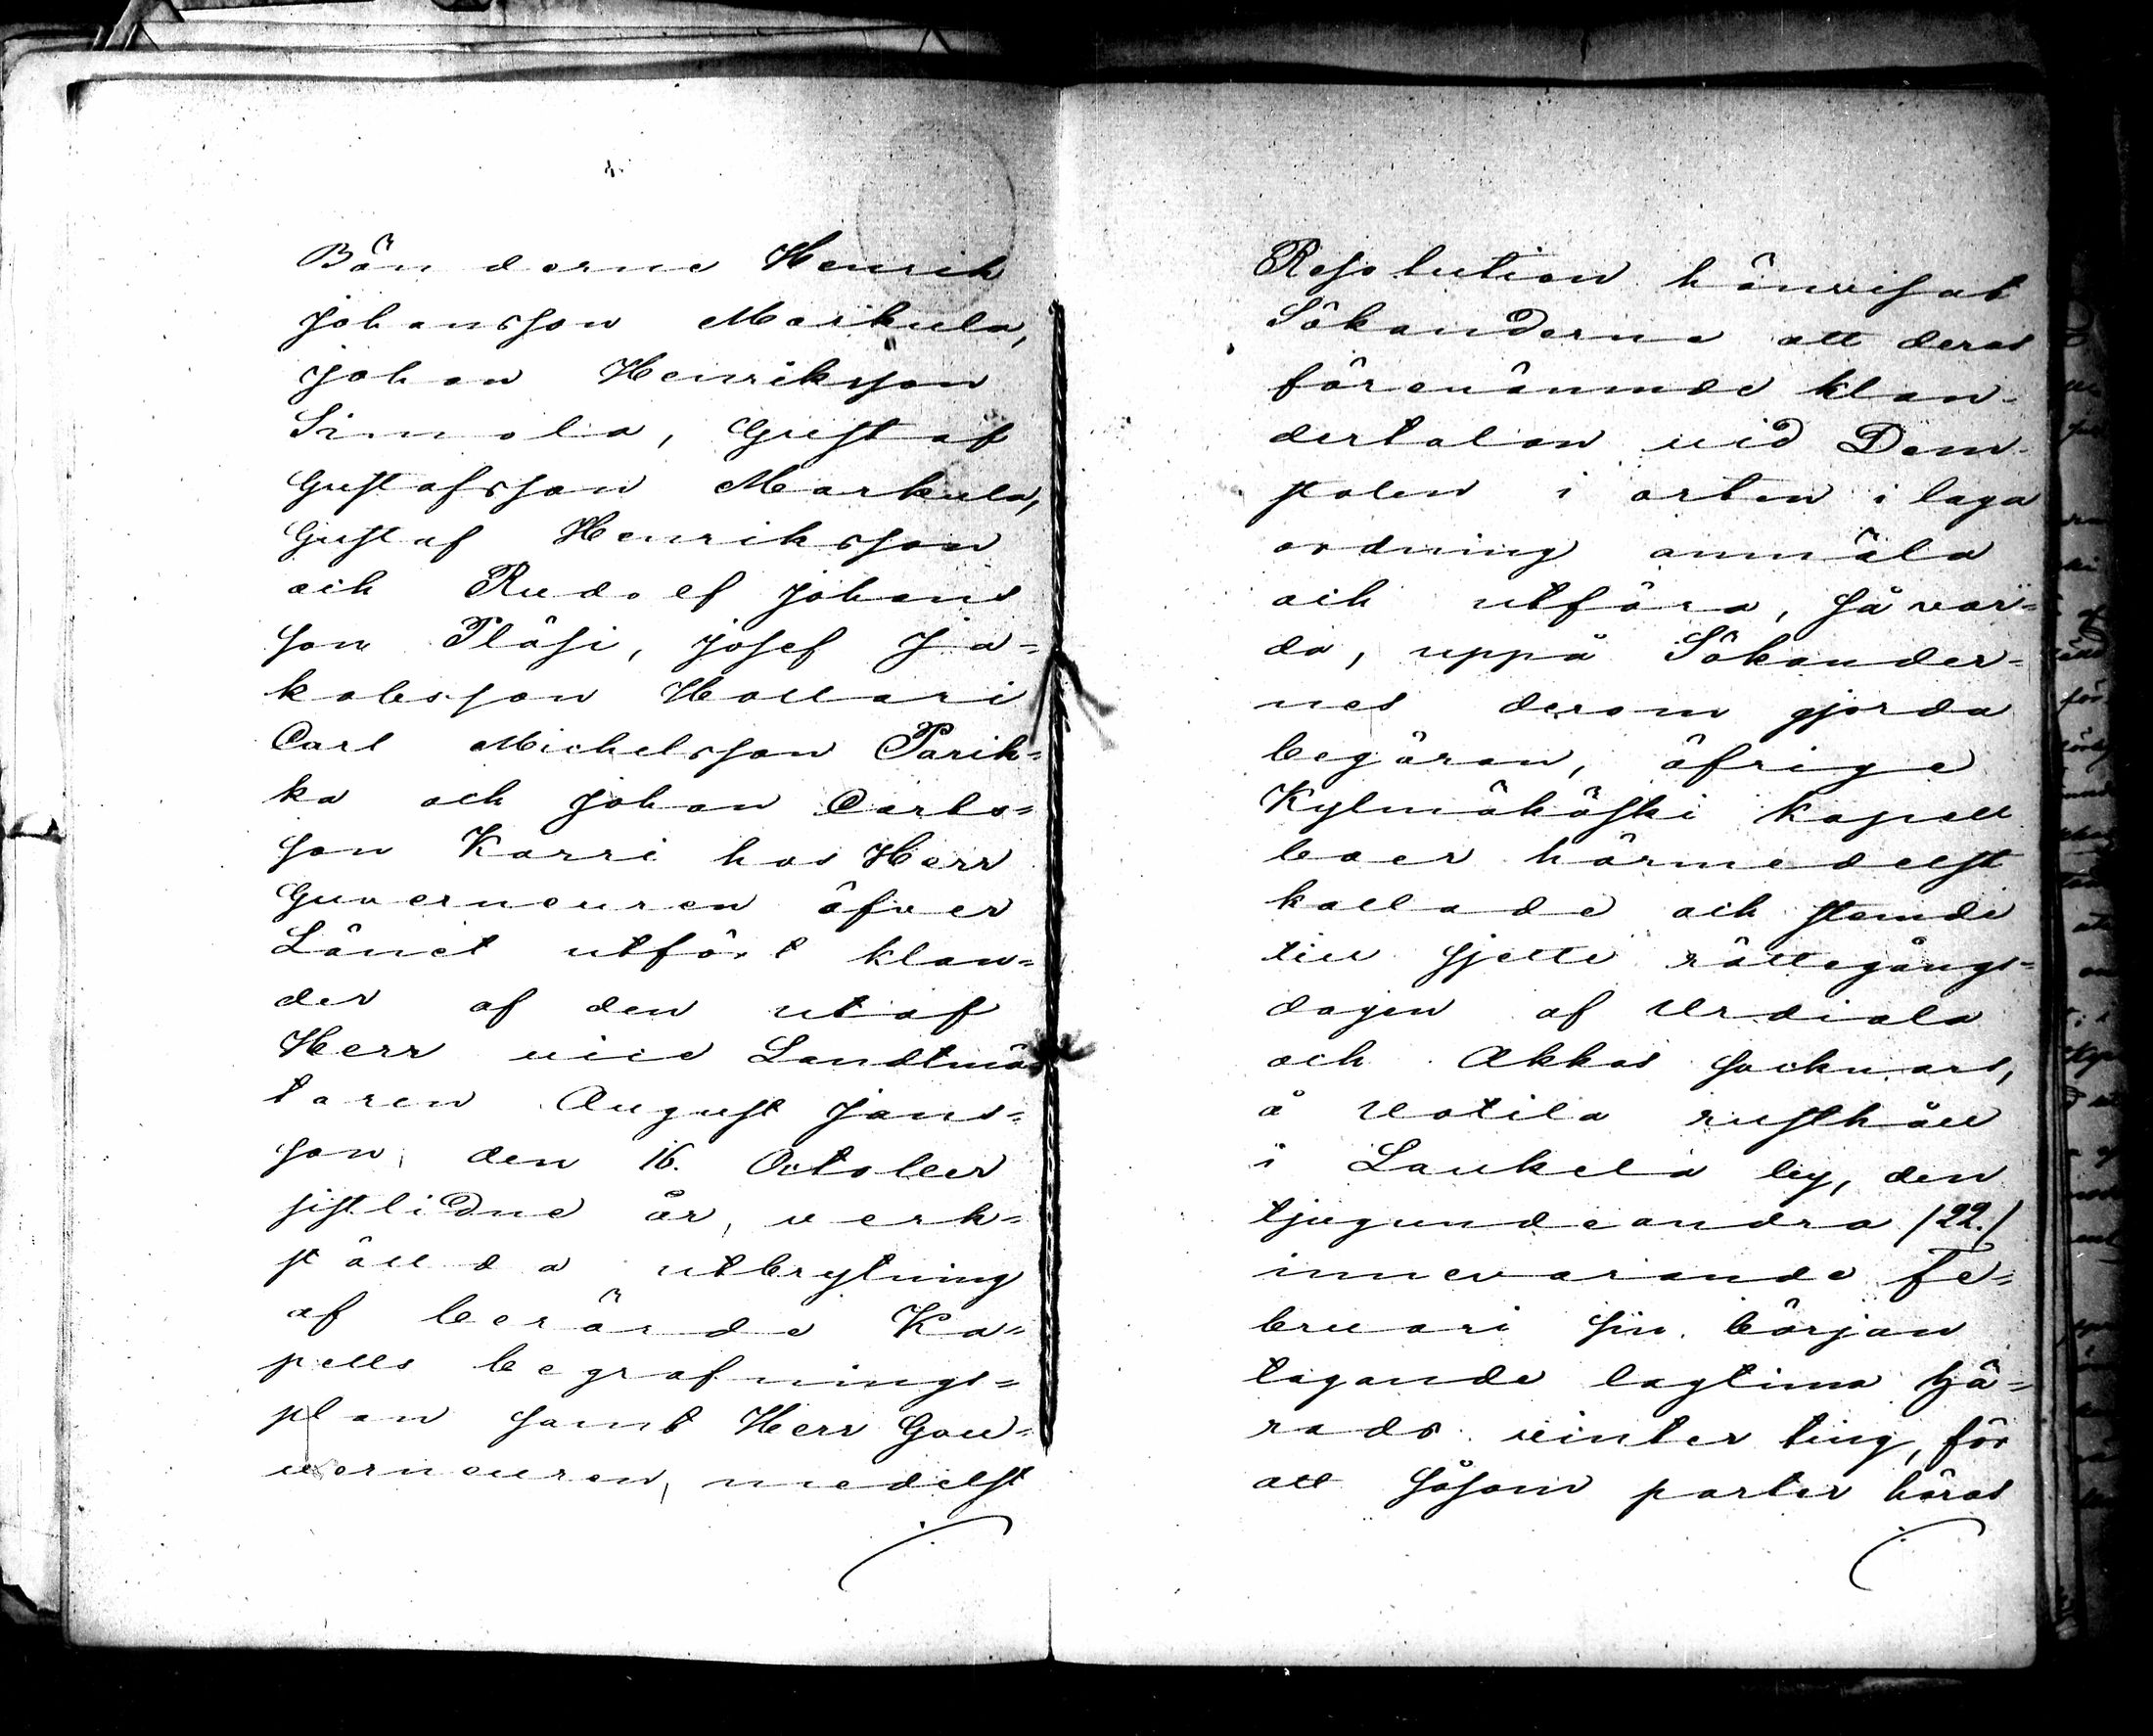 Bönderne Henrik
Johansson Markula,
Johan Henriksson
Simola, Gustaf
Gustafsson Markula,
Gustaf Henriksson
och Rudolf Johans
son Pläsi, Josef Ja=
kobsson Hollari
Carl Michelsson Parik=
ka och Johan Carls=
son Karri hos Herr
Guverneuren öfver
Länet utfört klan=
der af den utaf
Herr vice Landtmä
taren August Jans=
son, den 16. October
sistlidne år, verk=
ställda utbrytning
af berörde Ka=
pells begrafnings=
plan samt Herr Gou=
verneuren, medelst
Resolution hänvisat
Sökanderne att deras
förenämnde klan-
dertalan vid Dom-
stolen i orten i laga
ordning anmäla
och utföra, så var=
da, uppå Sökander=
nes derom gjorda
begäran, öfrige
Kylmäkoski kapell
boer härmedelst
kallade och stemde
till sjette rättegångs=
dagen af Urdiala
och Akkas socknars,
å Uotila rusthåll
i Laukela by, den
tjugundeandra /22./
innevarande Fe=
bruari sin början
tagande lagtima hä=
rads vinter ting, för
att såsom parter höras